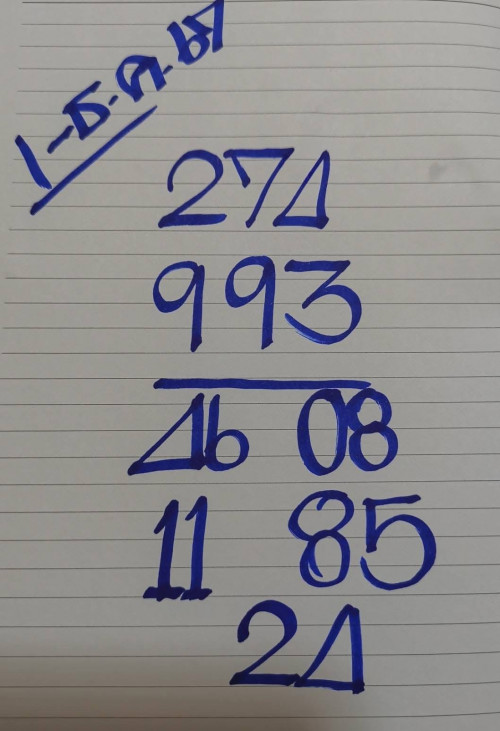 1-ธ.ค.67
274
993
46 08
11 85
24